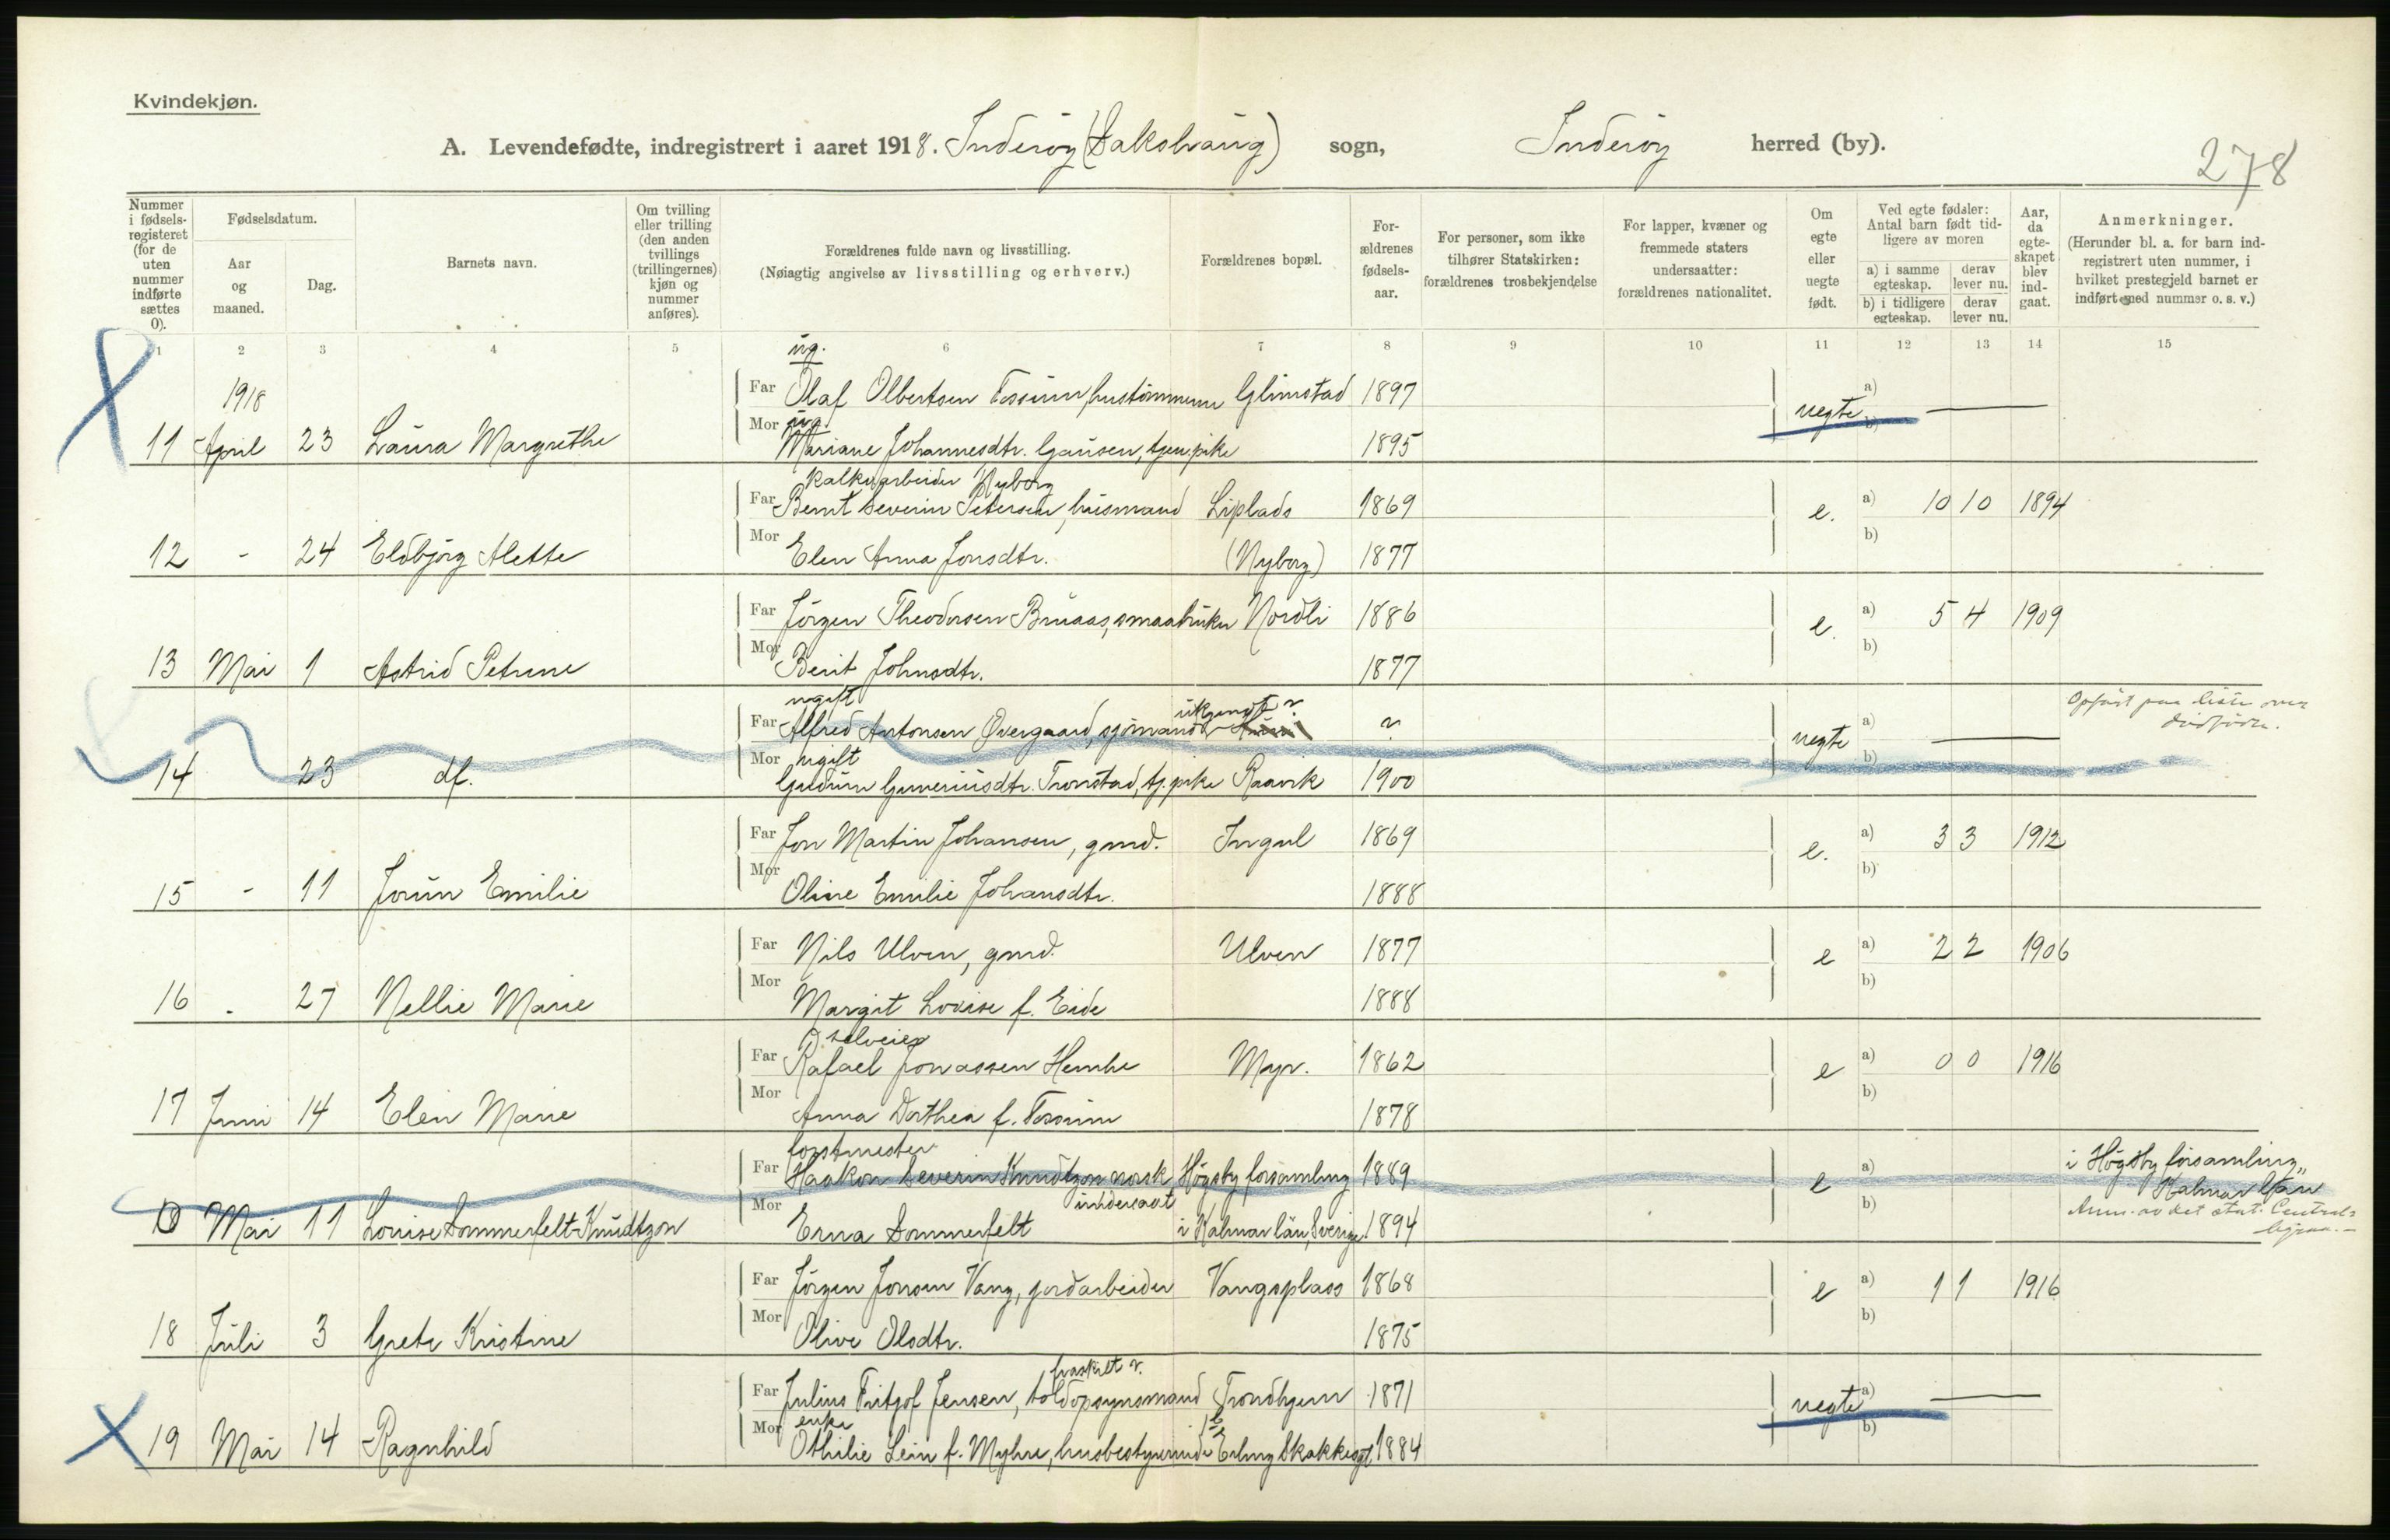 Kvindekjøn.
A. Levendefødte, indregistrert i aaret 1918. Inderøy (Sakshaug) sogn, Inderøy herred (by).
278
Nummer i fødsels-registeret (for de uten nummer indførte sættes 0).
Fødselsdatum.
Aar og maaned.
Dag.
Barnets navn.
Om tvilling eller trilling (den anden tvillings (trillingernes) kjøn og nummer anføres).
Forældrenes fulde navn og livsstilling.
(Nøiagtig angivelse av livsstilling og erhverv.)
Forældrenes bopæl.
For-ældrenes fødsels-aar.
For personer, som ikke tilhører Statskirken: forældrenes trosbekjendelse
For lapper, kvæner og fremmede staters undersaatter: forældrenes nationalitet.
Om egte eller uegte født.
Ved egte fødsler: Antal barn født tid-ligere av moren
a) i samme egteskap. derav lever nu.
b) i tidligere egteskap. derav lever nu.
Aar, da egte-skapet blev ind-gaat.
Anmerkninger.
(Herunder bl. a. for barn ind-registrert uten nummer, i hvilket prestegjeld barnet er indført med nummer o. s. v.)
1 2 3 4 5 6 7 8 9 10 11 12 13 14 15
ug.
1918
Far Olaf Olbertsen Fossum, Glimstad 1897 uegte a) b)
Mor ug
11 April 23 Laura Margrethe Mariane Johannesdtr. tjen.pike 1895
kalkarbeider Nyborg
Far Bernt Severin Petersen, husmand Liplads 1869 e. a) 10 10 1894
12 - 24 Eldbjørg Alette Mor Elen Anna Jonsdtr. (Nyborg) 1877 b)
Far Jörgen Theodorsen Bruaas, smaabruker Nordli 1886 e. a) 5 4 1909
13 Mai 1 Astrid Petrine Mor Berit Johnsdtr. 1877 b)
ugift ukjendt ?
Far Alfred Antonsen Øvergaard, sjömand ? uegte a) Opført paa liste over dødfødte.
Mor ugift b)
14 23 df. Gudrun Guneriusdtr. Tronstad, tj.pike Raavik 1900
Far Jon Martin Johansen, gmd. Ingul 1869 e. a) 3 3 1912
15 - 11 Jorun Emilie Mor Oline Emilie Johansdtr. 1888 b)
Far Nils Ulven, gmd. Ulven 1877 e a) 2 2 1906
16 - 27 Nellie Marie Mor Margit Lovise f. Eide 1888 b)
selveier
Far Rafael Jonassen Hembe Myr. 1862 e a) 0 0 1916
17 Juni 14 Elen Marie Mor Anna Dorthea f. Fossum 1878 b)
forstmester
Far Haakon Severin Knudtzon norsk Högsby församling 1889 e a) i Högsby församling,
undersaat Kalmar län
0 Mai 11 Louise Sommerfelt Knudtzon Mor Erna Sommerfelt i Kalmar län, Sverige 1894 b) Anm. av det stat. Central-
byraa.
Far Jörgen Jonsen Vang, jordarbeider Vangsplass 1868 e a) 1 1 1916
18 Juli 3 Grete Kristine Mor Olive Olsdtr. 1875 b)
fraskilt
Far Julius Fritjof Jensen, toldopsynsmand Trondhjem 1871 uegte a)
enke
19 Mai 14 Ragnhild Mor Othilie Lein f. Myhre, husbestyrerinde Erling Skakkesgt. 1884 b)